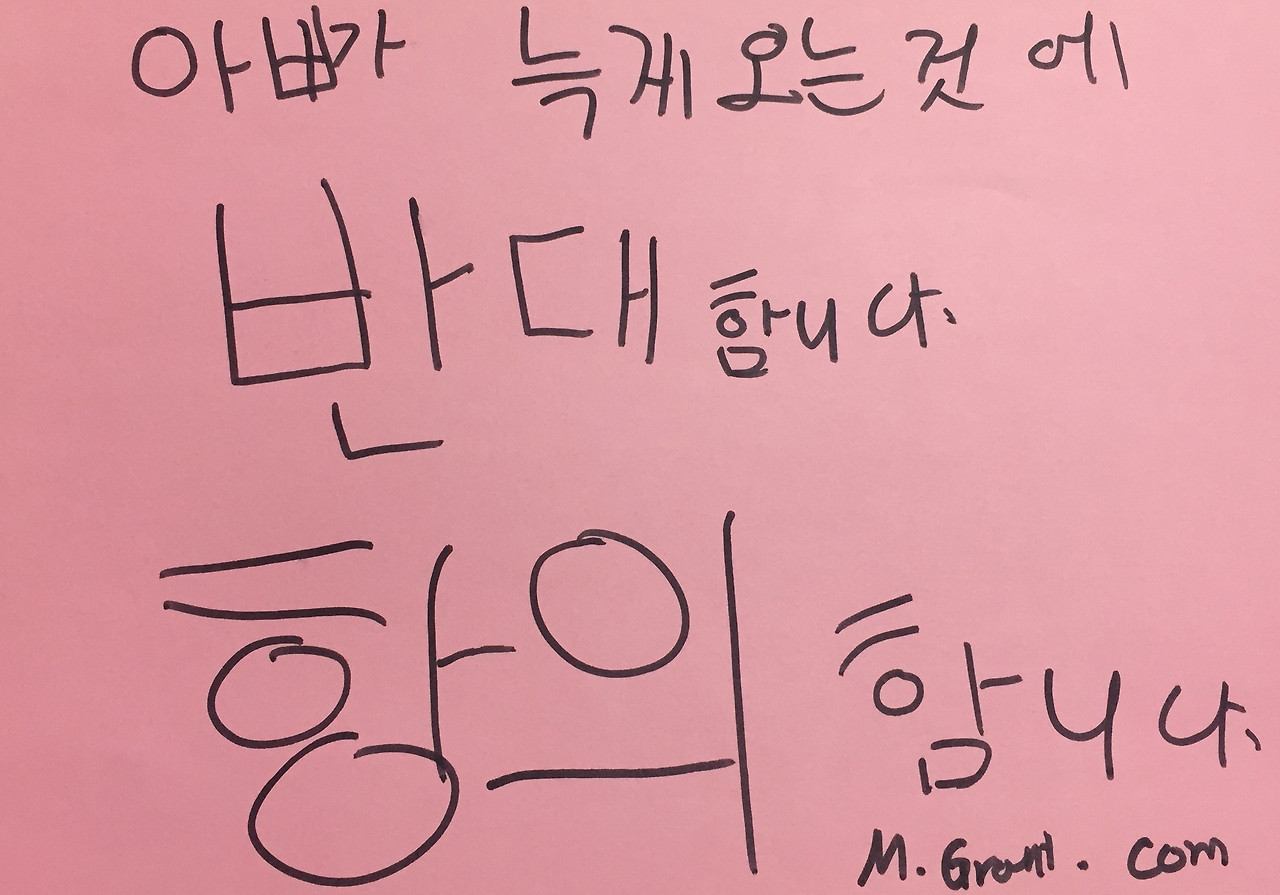 아빠가 늑게 오는것에
반대합니다.
항의합니다.
M.Grant.com